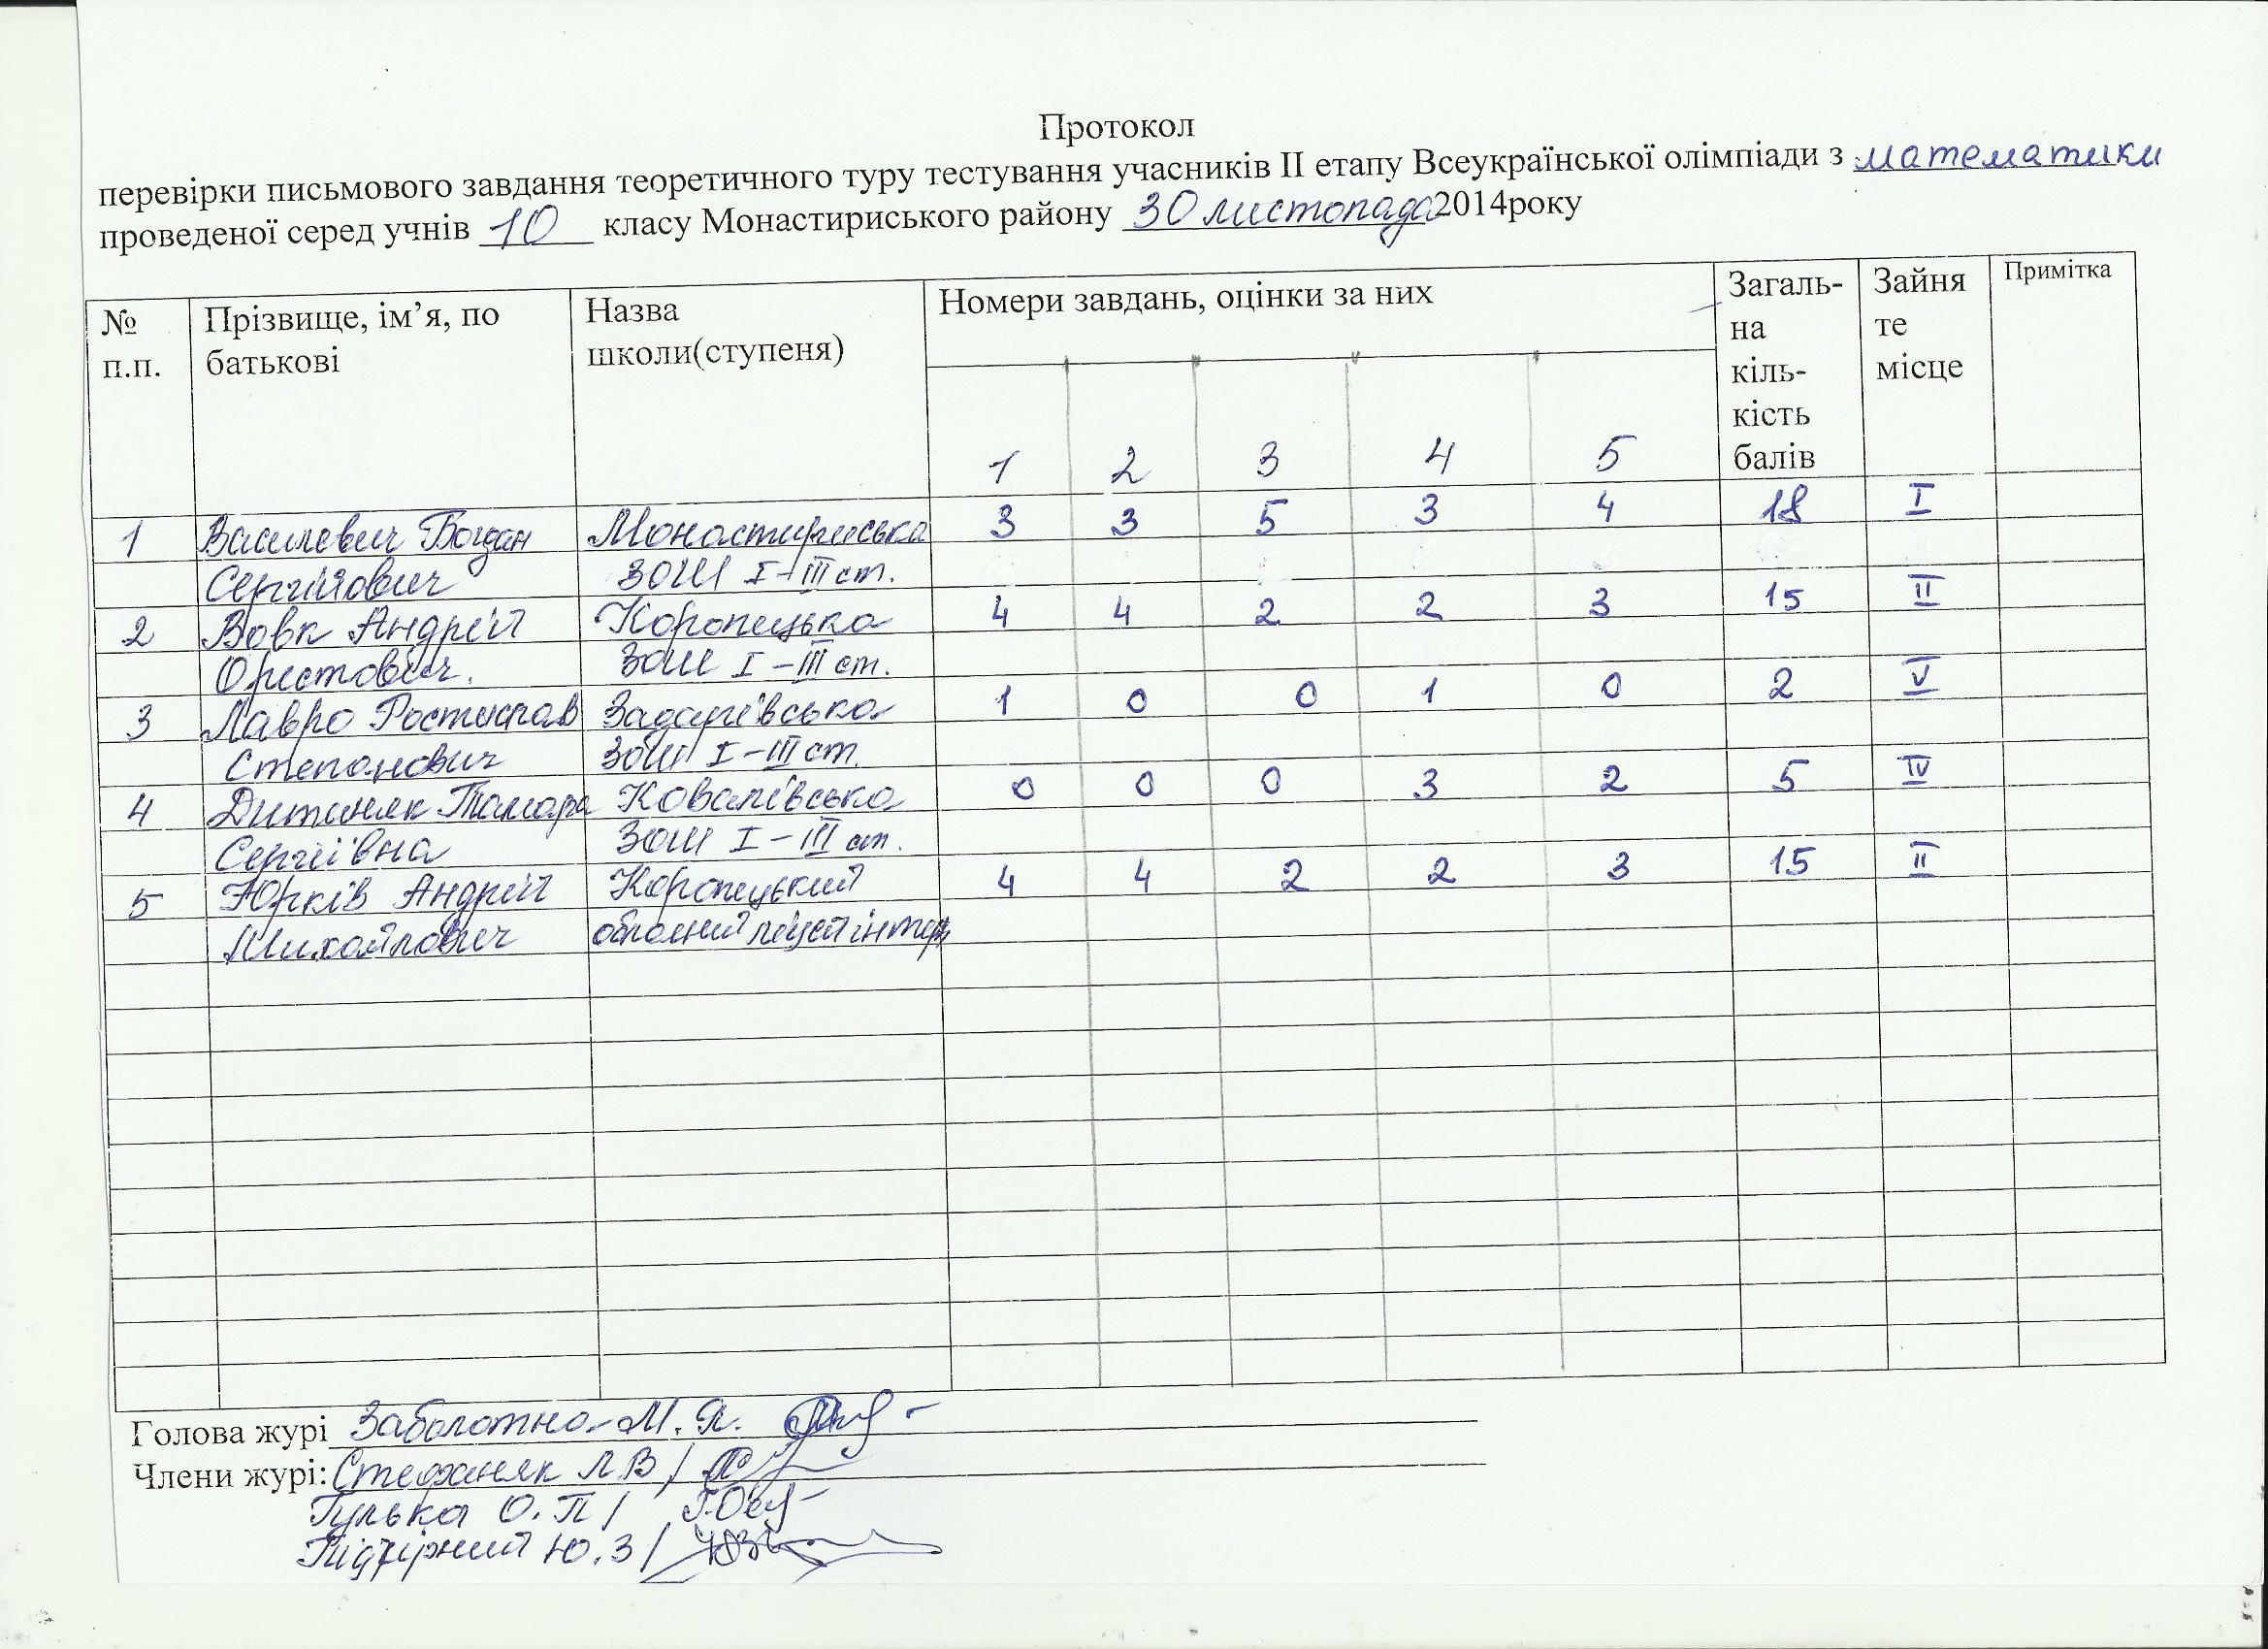 Протокол
перевірки письмового завдання теоретичного туру тестування учасників ІІ етапу Всеукраїнської олімпіади з математики
проведеної серед учнів 10 класу Монастириського району 30 листопада 2014року
№ п.п. Прізвище, ім’я, по батькові Назва школи(ступеня) Номери завдань, оцінки за них Загаль-на кіль-кість балів Зайня те місце Примітка
1 2 3 4 5
1 Василевич Богдан Монастириська 3 3 5 3 4 18 I
Сергійович ЗОШ I-III ст.
2 Вовк Андрій Коропецька 4 4 2 2 3 15 II
Орестович. ЗОШ I-III ст.
3 Лавро Ростислав Задарівська 1 0 0 1 0 2 V
Степанович ЗОШ I-III ст.
4 Дитиняк Тамара Ковалівська 0 0 0 3 2 5 IV
Сергіївна ЗОШ I-III ст.
5 Юрків Андрій Коропецький 4 4 2 2 3 15 II
Михайлович обласний ліцей інтер
Голова журі Заболотна М. Я.
Члени журі: Стефаняк Л В /
Гулька О. П /
Підгірний Ю. З /